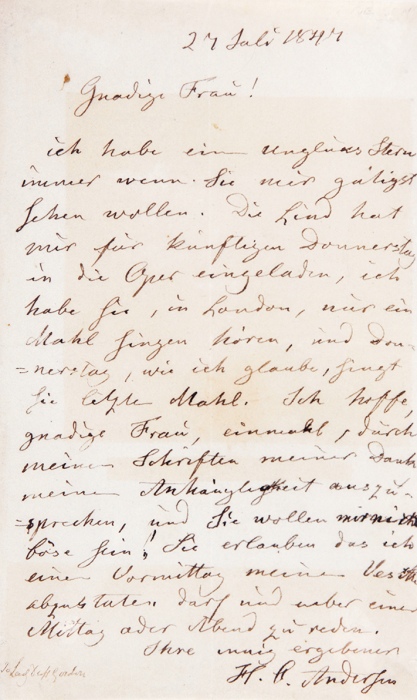 27 Juli 1847
Gnadige Frau!
ich habe ein Unglücks Stern
immer wenn Sie mir gütigst
sehen wollen. Die Lind hat
mir für künftigen Donnerstag
in die Oper eingeladen, ich
habe Sie, in London, nur ein
Mahl singen hören, und Don-
=nerstag, wie ich glaube, singt
sie letzte Mahl. Ich hoffe
gnadige Frau, einmahl, durch
meine Schriften meiner Dank
meine Anhängligkeit auszu-
=sprechen, und Sie wollen mir nicht
böse sein! Sie erlauben das ich
eine Vormittag meine
abzustaten darf und ueber einen
Mittag oder Abend zu reden.
Ihre innig ergebener
H. C. Andersen
To Lady Duff Gordon